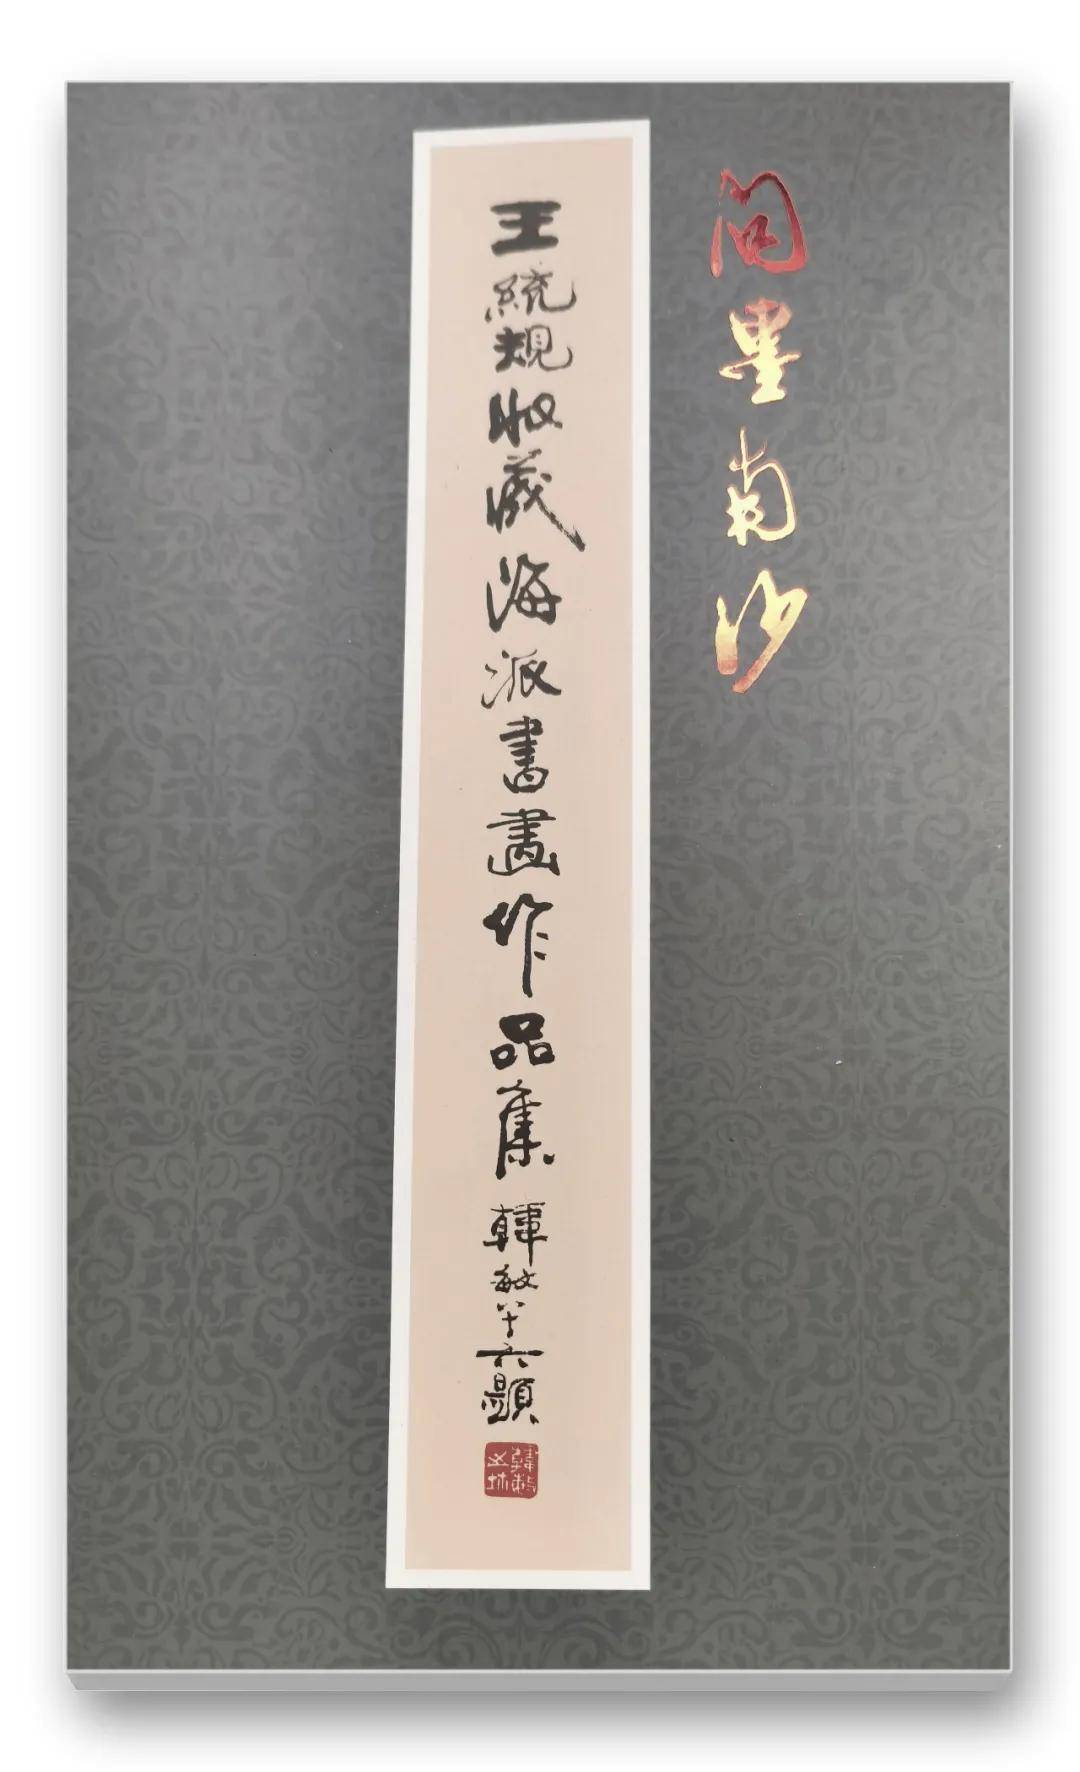 问墨南沙
王統規收藏海派書畫作品集 韓敏八十六題
韓敏